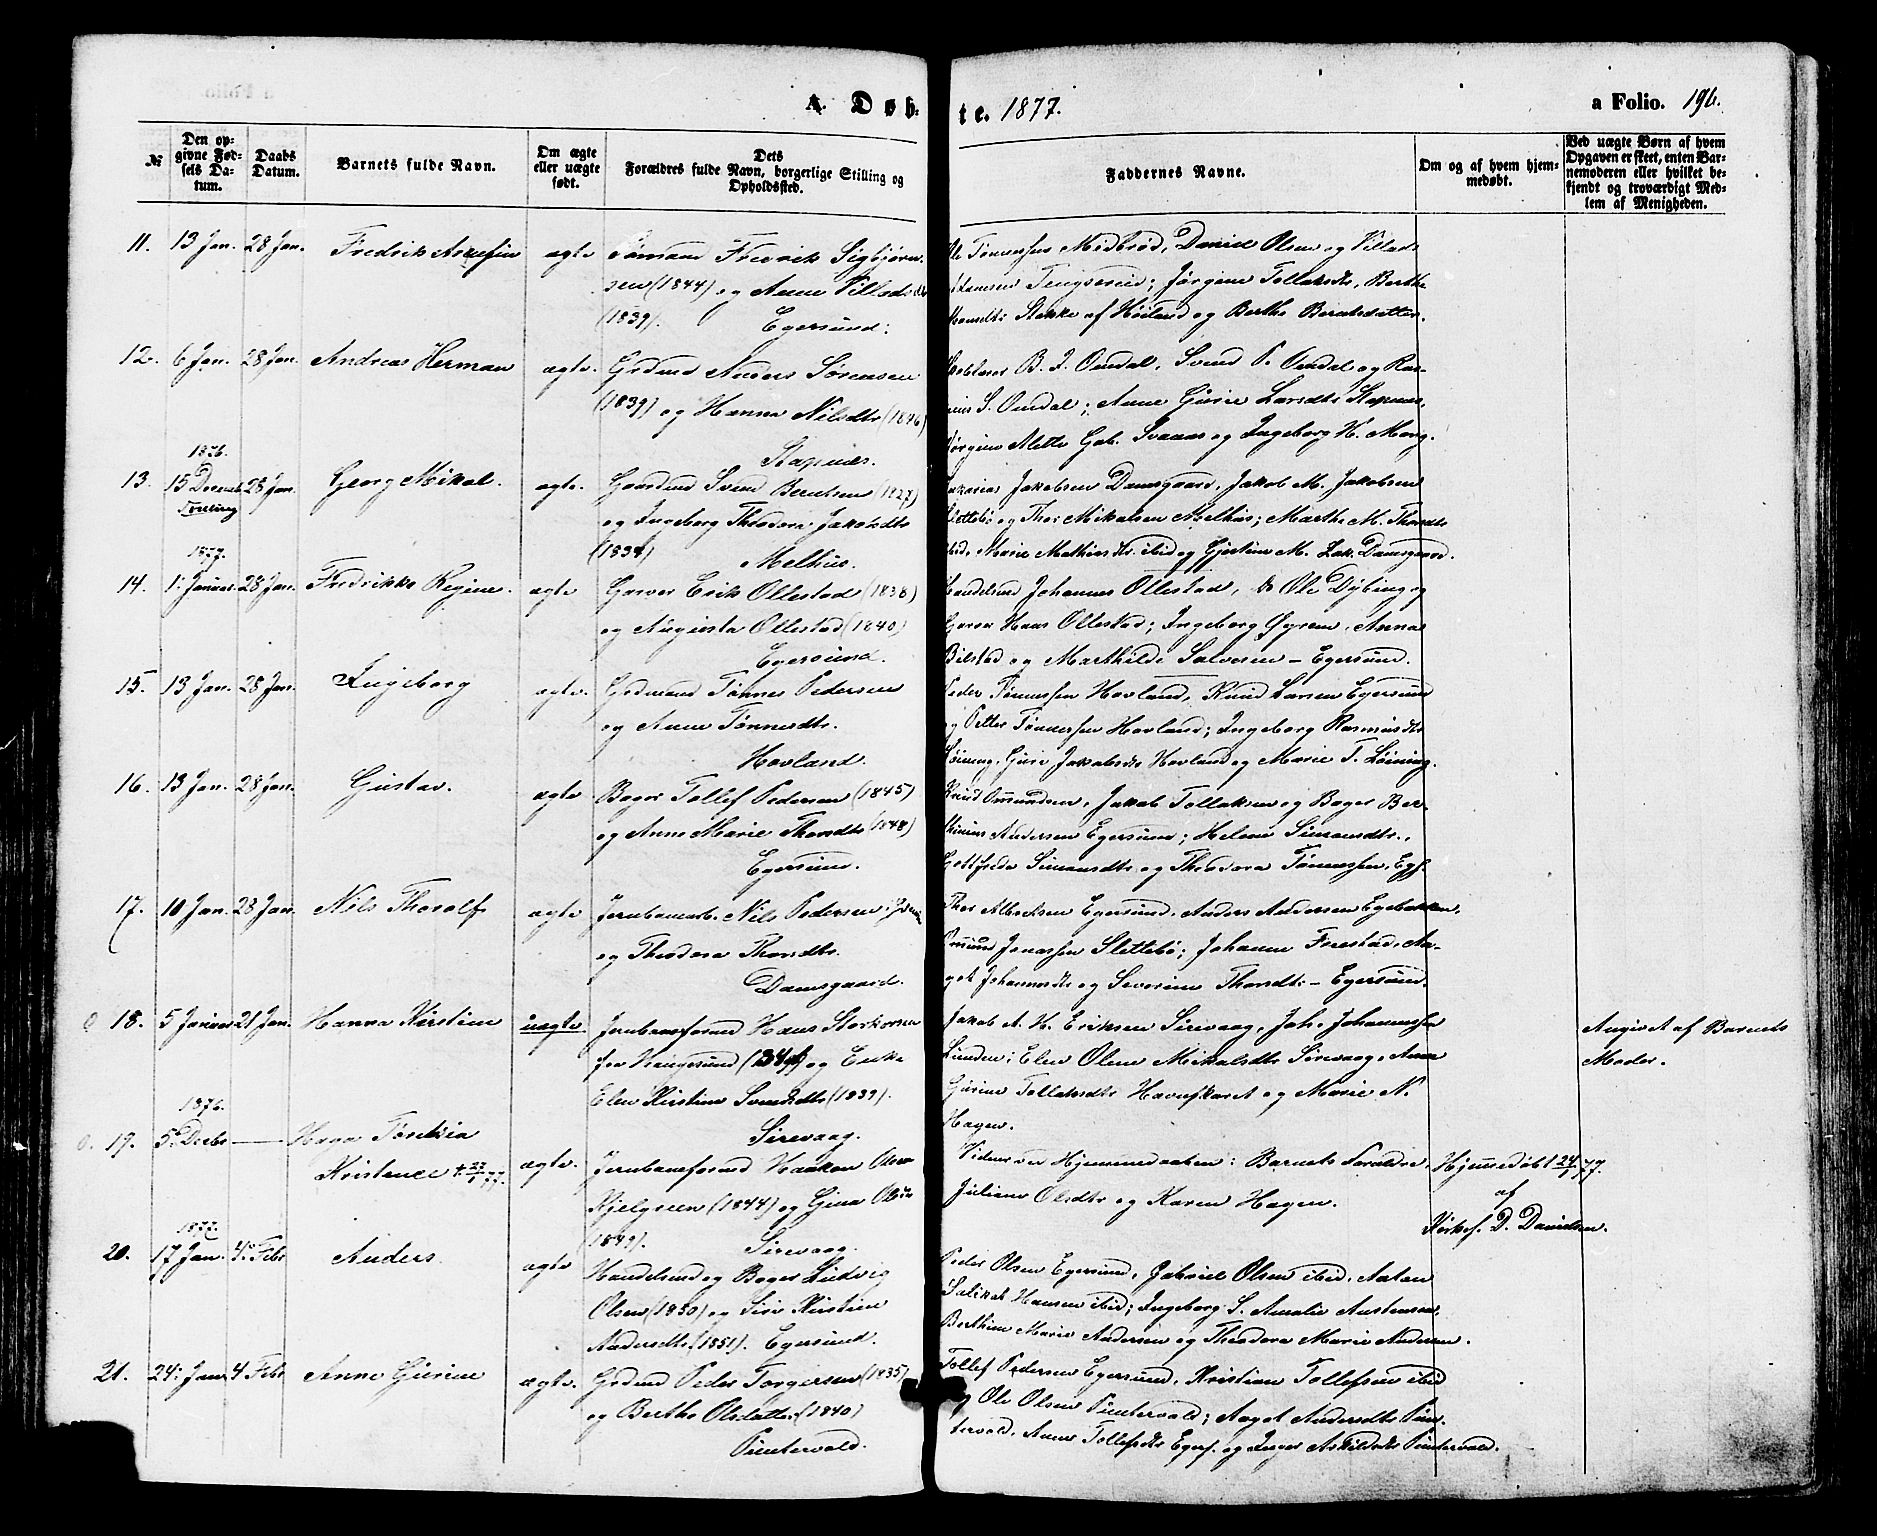 A. Døb-
te. 1877.
a Folio. 196.
№
Den op-
givne Fød-
sels Da-
tum.
Daabs
Datum.
Barnets fulde Navn.
Om ægte
eller uægte
født.
Dets
Forældres fulde Navn, borgerlige Stilling og
Opholdssted.
Faddernes Navne.
Om og af hvem hjem-
medøbt.
Ved uægte Børn af hvem
Opgaven er skeet, enten Bar-
nemoderen eller hvilket be-
kjendt og troværdigt Med-
lem af Menigheden.
11. 13 Jan. 28 Jan. Fredrik ægte Sømand Fredrik Sigbjørn-
sen (1844) og Anne Villadsdtr
(1839). Egersund.
Ole Tønnessen Midbrød, Daniel Olsen og Villads
Tengsereid; Jørgine Tollaksdtr, Berthe
Stokke af Høiland og Berthe Berntsdatter.
12. 6 Jan. 28 Jan. Andreas Herman ægte. Grdmd Anders Sørensen
(1839) og Hanna Nilsdtr (1846)
Stapnes.
B. J. Omdal, Svend P. Omdal og Ras-
mus S. Omdal; Anne Gurie Larsdtr Stapnes,
Jørgine Alette Gab. Svanes og Ingeborg H. Mong.
13. 1876. 15 Decemb. 28 Jan. Georg Mikal. ægte. Gaardmd Svend Berntsen (1827)
Tvilling
og Ingeborg Theodora Jakobsdtr
(1834) Melhus.
Zakarias Jakobsen Damsgaard, Jakob M. Jakobsen
Slettebø og Thor Mikalsen Melhus; Marthe M. Thorsdtr
ibid, Marie Mathiasdtr. ibid og Gjertine M. Zak. Damsgaard.
14. 1877. 1: Januar 28 Jan. Fredrikke Regine. ægte Garver Erik Ollestad (1838)
og Augusta Ollestad (1840)
Egersund.
Handelsmd Johannes Ollestad, do Ole Dybing og
Garver Hans Ollestad; Ingeborg Øyrem, Anna
Bilstad og Marthilde Salvesen – Egersund.
15. 13 Jan. 28 Jan. Ingeborg ægte. Grdmand Tønnes Pedersen
og Anne Tønnesdtr.
Hovland.
Peder Tønnessen Hovland, Knud Larsen Egersund
og Petter Tønnessen Hovland; Ingeborg Rasmusdtr
Løining, Gurie Jakobsdtr Hovland og Marie T. Løining.
16. 13 Jan. 28 Jan. Gustav. ægte Bager Tollef Pedersen (1845)
og Anne Marie Thorsdtr (1848)
Egersund.
Knud Omundsen, Jakob Tollaksen og Bager Ber-
Andersen Egersund; Helene Simonsdtr.,
Gottfreda Simonsdtr. og Theodora Tønnessen, Egs.
17. 10 Jan. 28 Jan. Nils Thoralf ægte Jernbanearb. Nils Pedersen
og Theodora Thorsdtr.
Damsgaard.
Thor Albretsen Egersund, Anders Andersen Egebakken,
Omund Jonassen Slettebø; Johanne Frestad, Aa-
got Johannesdtr og Severine Thorsdtr – Egersund.
18. 5 Januar 21 Jan. Hanna Kirstine uægte. Jernbaneformd Hans Storkorsen
fra Haugesund og Enke
Elen Kirstine Svendsdtr (1839).
Sirevaag.
Jakob A. H. Eriksen Sirevaag, Joh. Johannessen
Lunden; Elen Olene Mikalsdtr Sirevaag, Anne
Gurine Tollaksdtr Havnskaret og Marie N.
Hagen.
Angivet af Barnets
Moder.
19. 1876. 5 Decbr —
Kristence † 27/1 77. ægte. Jernbaneformd Haakon Olsen
Kjelgreen (1844) og Gina Olsen
(1849). Sirevaag.
Vidner ved Hjemmedaaben: Barnets Forældre,
Juliane Olsdtr og Karen Hagen.
Hjemmedøbt 24/1 77.
af
Kirkes. D. Danielsen.
20. 1877. 17 Jan. 4. Febr Anders. ægte Handelsmd og Bager Ludvig
Olsen (1850) og Siri Kirstine
Andersdtr. (1851). Egersund.
Peder Olsen Egersund, Gabriel Olsen ibid, Anton
Hansen ibid; Ingeborg S. Amalie Austensen,
Berthine Marie Andersen og Theodora Marie Andersen.
21. 24: Jan 4 Febr Anne Gurine ægte. Grdmd Peder Torgersen (1835)
og Berthe Olsdatter (1840)
Puntervold.
Tollef Pedersen Egersund, Kristian Tollefsen ibid
og Ole Olsen Puntervold; Aagot Andersdtr Pun-
tervold, Anne Tollefsdtr Egers. og Inger Askildsdtr Puntervold.